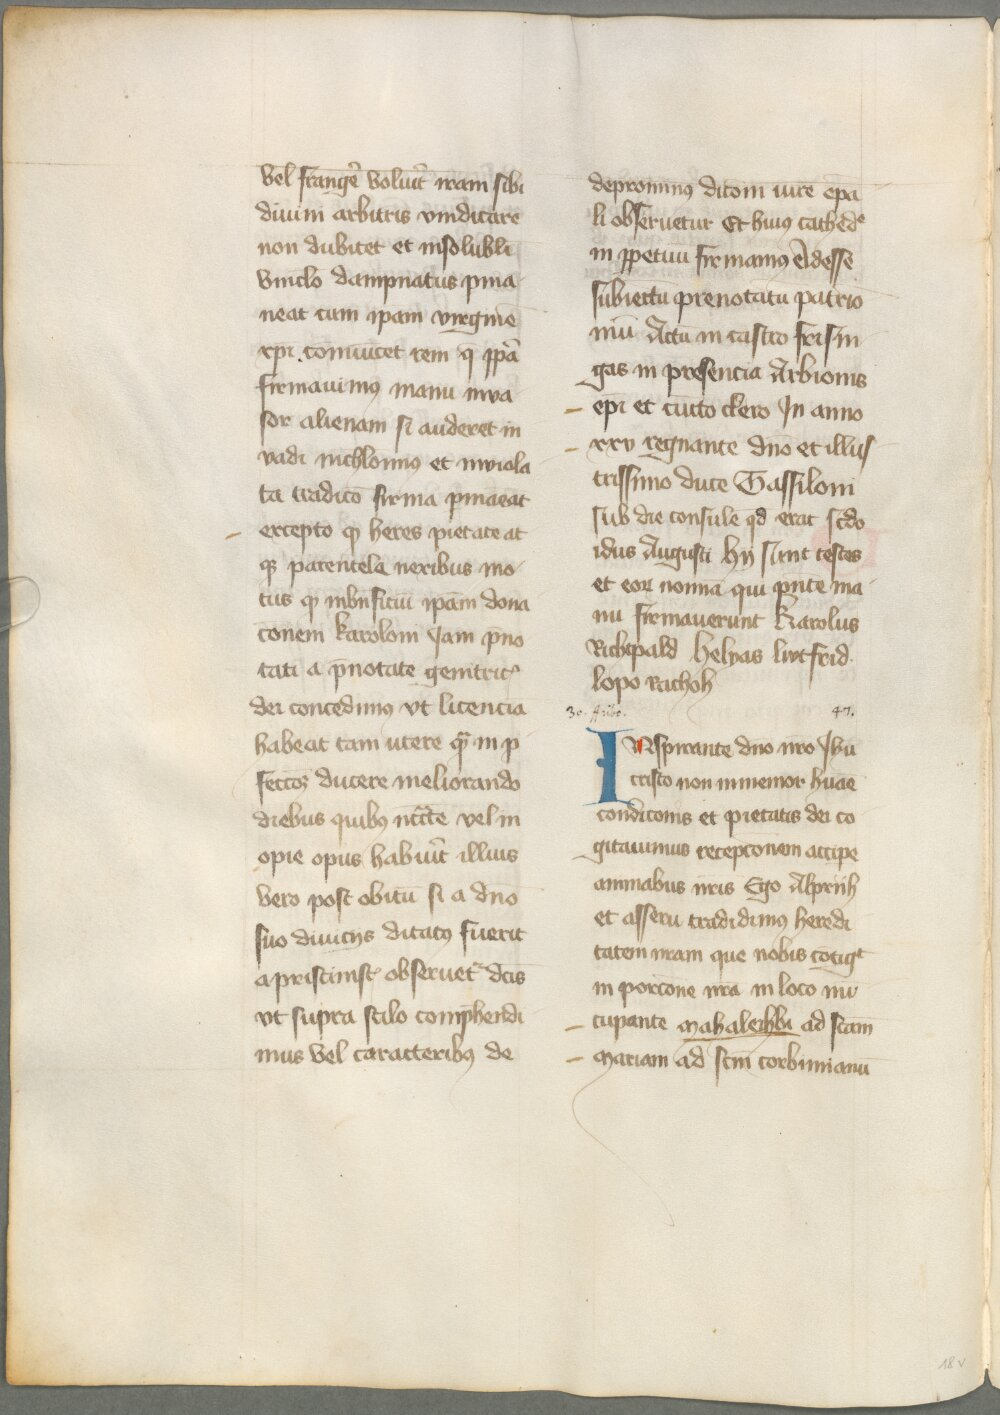 vel frangē voluīt iram sibi
diuini arbitris vindicare
non dubitet et insolubli
vinclo dampnatus pma-
neat cum ipam virginē
xpi comiūcet rem q̄ ppā
firmauimus manu inua-
sor alienam si auderet in
vadi nichlomus et inuiola
ta tradico firma pmāeat
excepto qp heres pietate at
qz parentele nexibus mo-
tus qp inbnficiū ipam dona
conem karoloni Jam p̄no
tati a p̄notate genitric
dei concedimus vt licencia
habeat tam utere q̄ in p
fectos ducere meliorando
diebus quibus ncc̄te vel in
opie opus habiūt illius
vero post obitū si a dno
suo diuicijs ditatus fuerit
a pristinis obseruet dcis
vt supra stilo comphendi
mus vel caracteribus de
depromimus dicom iure epa
li obseruetur Et huius cathed
in ppetuu firmamus eidesse
subiectū prenotatu patrio
niū Actu in castro frisin-
gas in presencia Arbionis
epi et cūcto clero In anno
xxv regnante dno et illus
trissimo duce Tassiloni
sub die consule qd erat scdo
idus Augusti hij sunt testes
et eor nomīa qui pn̄te ma-
nu firmauerunt Karolus
Richpald helyas liutfrid
lopo rachoh
30. Aribo. 47.
INspirante dno nro Jhu
cristo non inmemor huāe
condicois et pietatis dei co
gitauimus recepconem accipe
animabus nris Ego Alprih
et asseru tradidimus heredi
tatem nram que nobis cōtigt
in porcone nra in loco nū
cupante mahalerhbi ad scam
mariam ad scm corbinianū
18 v